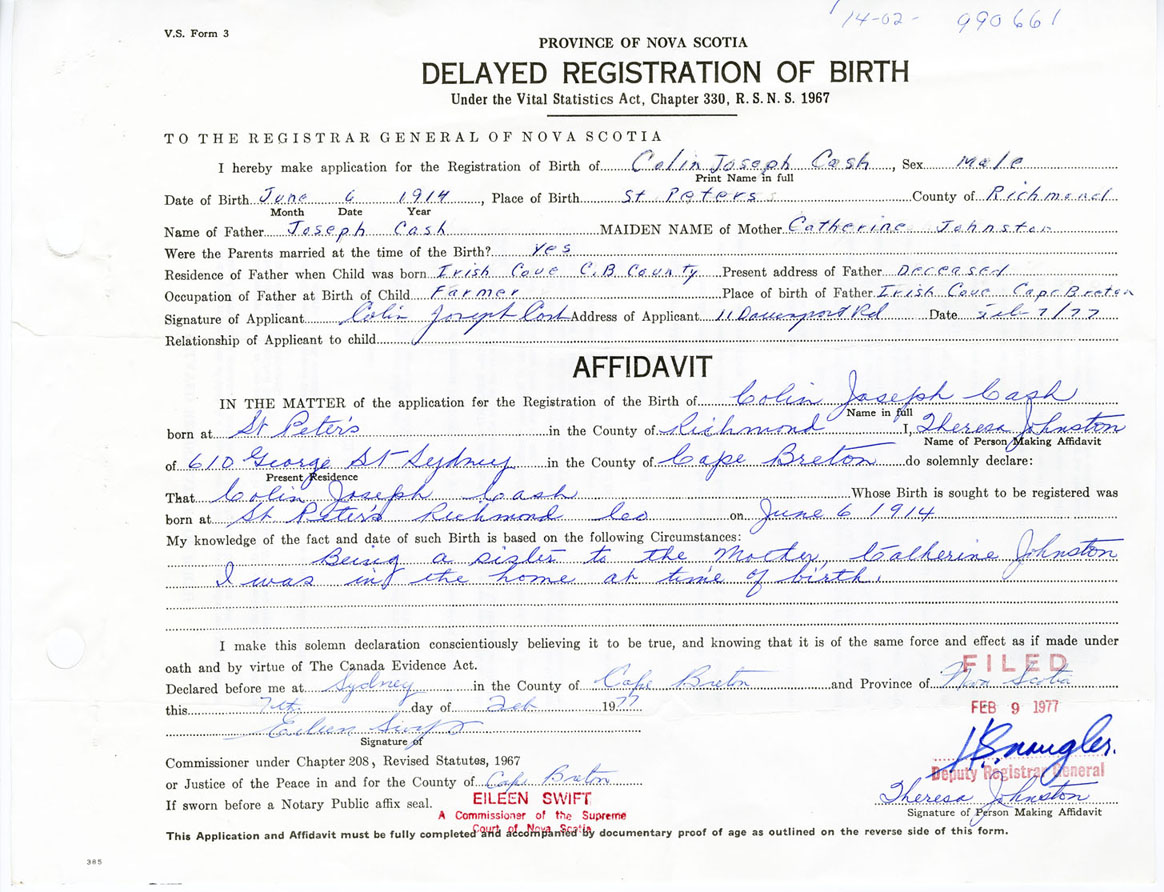 14-02- 990661
V.S. Form 3
PROVINCE OF NOVA SCOTIA
DELAYED REGISTRATION OF BIRTH
Under the Vital Statistics Act, Chapter 330, R.S.N.S. 1967
TO THE REGISTRAR GENERAL OF NOVA SCOTIA
I hereby make application for the Registration of Birth of Colin Joseph Cash, Sex male
Print Name in full
Date of Birth June 6 1914, Place of Birth St Peters County of Richmond
Month Date Year
Name of Father Joseph Cash MAIDEN NAME of Mother Catherine Johnston
Were the Parents married at the time of the Birth? Yes
Residence of Father when Child was born Irish Cove C.B County Present address of Father Deceased
Occupation of Father at Birth of Child Farmer Place of birth of Father Irish Cove Cape Breton
Signature of Applicant Colin Joseph Cash Address of Applicant 11 Davenport Rd Date Feb 7/77
Relationship of Applicant to child
AFFIDAVIT
IN THE MATTER of the application for the Registration of the Birth of Colin Joseph Cash
Name in full
born at St Peter's in the County of Richmond I, Theresa Johnston
Name of Person Making Affidavit
of 610 George St Sydney in the County of Cape Breton do solemnly declare:
Present Residence
That Colin Joseph Cash Whose Birth is sought to be registered was
born at St Peter's Richmond Co on June 6 1914
My knowledge of the fact and date of such Birth is based on the following Circumstances:
Being a sister to the Mother, Catherine Johnston
I was in the home at time of birth.
I make this solemn declaration conscientiously believing it to be true, and knowing that it is of the same force and effect as if made under
oath and by virtue of The Canada Evidence Act.
FILED
Declared before me at Sydney in the County of Cape Breton and Province of Nova Scotia
this 7th day of Feb 1977
FEB 9 1977
Eileen Swift
Signature of
Commissioner under Chapter 208, Revised Statutes, 1967
Deputy Registrar General
or Justice of the Peace in and for the County of Cape Breton
Theresa Johnston
If sworn before a Notary Public affix seal.
EILEEN SWIFT
Signature of Person Making Affidavit
A Commissioner of the Supreme
Court of Nova Scotia
This Application and Affidavit must be fully completed and accompanied by documentary proof of age as outlined on the reverse side of this form.
385